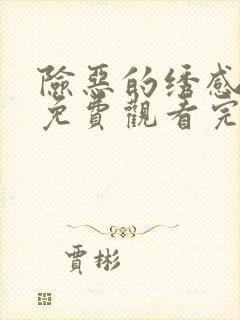 險惡的绣感
免費觀看完
賈彬